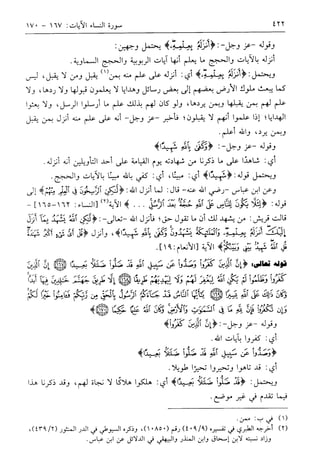 ٤٢٢ سورة النساء الآيات: ١٦٧ - ١٧٠
وقوله -عز وجل-: ﴿أَنزَلَهُۥ بِعِلۡمِهِۦۖ﴾ يحتمل وجهين:
أنزله بالآيات والحجج ما يعلم أنها آيات الربوبية والحجج السماوية.
ويحتمل: ﴿أَنزَلَهُۥ بِعِلۡمِهِۦۖ﴾ أي: أنزله على علم منه بمن(١) يقبل ومن لا يقبل، ليس
كما يبعث ملوك الأرض بعضهم إلى بعض رسائل وهدايا لا يعلمون قبولها ولا ردها، ولا
علم لهم بمن يقبلها وبمن يردها، ولو كان لهم بذلك علم ما أرسلوا الرسل، ولا بعثوا
الهدايا؛ إذا علموا أنهم لا يقبلون؛ فأخبر -عز وجل- أنه على علم منه أنزل بمن يقبل
وبمن يرد، والله أعلم.
وقوله -عز وجل-: ﴿وَكَفَىٰ بِٱللَّهِ شَهِيدًا﴾
أي: شاهدًا على ما ذكرنا من شهادته يوم القيامة على أحد التأويلين أنه أنزله.
ويحتمل قوله: ﴿شَهِيدًا﴾ أي: مبينًا، أي: كفى بالله مبينًا بالآيات والحجج.
وعن ابن عباس -رضي الله عنه- قال: لما أنزل الله: ﴿لَّٰكِنِ ٱلرَّٰسِخُونَ فِي ٱلۡعِلۡمِ مِنۡهُمۡ﴾ إلى
قوله: ﴿لِئَلَّا يَكُونَ لِلنَّاسِ عَلَى ٱللَّهِ حُجَّةُۢ بَعۡدَ ٱلرُّسُلِۚ ...﴾ الآية(٢) [النساء: ١٦٢-١٦٥] -
قالت قريش: من يشهد لك أن ما تقول حق؛ فأنزل الله -تعالى-: ﴿لَّٰكِنِ ٱللَّهُ يَشۡهَدُ بِمَآ أَنزَلَ
إِلَيۡكَۖ أَنزَلَهُۥ بِعِلۡمِهِۦۖ وَٱلۡمَلَٰٓئِكَةُ يَشۡهَدُونَۚ وَكَفَىٰ بِٱللَّهِ شَهِيدًا﴾، وأنزل ﴿قُلۡ أَيُّ شَيۡءٍ أَكۡبَرُ شَهَٰدَةٗۖ
قُلِ ٱللَّهُۖ شَهِيدُۢ بَيۡنِي وَبَيۡنَكُمۡۚ﴾ الآية [الأنعام: ١٩].
قوله تعالى: ﴿إِنَّ ٱلَّذِينَ كَفَرُواْ وَصَدُّواْ عَن سَبِيلِ ٱللَّهِ قَدۡ ضَلُّواْ ضَلَٰلَۢا بَعِيدًا ١٦٧ إِنَّ ٱلَّذِينَ
كَفَرُواْ وَظَلَمُواْ لَمۡ يَكُنِ ٱللَّهُ لِيَغۡفِرَ لَهُمۡ وَلَا لِيَهۡدِيَهُمۡ طَرِيقًا ١٦٨ إِلَّا طَرِيقَ جَهَنَّمَ خَٰلِدِينَ فِيهَآ أَبَدٗاۚ
وَكَانَ ذَٰلِكَ عَلَى ٱللَّهِ يَسِيرٗا ١٦٩ يَٰٓأَيُّهَا ٱلنَّاسُ قَدۡ جَآءَكُمُ ٱلرَّسُولُ بِٱلۡحَقِّ مِن رَّبِّكُمۡ فَـَٔامِنُواْ خَيۡرٗا لَّكُمۡۚ
وَإِن تَكۡفُرُواْ فَإِنَّ لِلَّهِ مَا فِي ٱلسَّمَٰوَٰتِ وَٱلۡأَرۡضِۚ وَكَانَ ٱللَّهُ عَلِيمًا حَكِيمٗا ١٧٠﴾
وقوله -عز وجل-: ﴿إِنَّ ٱلَّذِينَ كَفَرُواْ﴾
أي: كفروا بآيات الله.
﴿وَصَدُّواْ عَن سَبِيلِ ٱللَّهِ قَدۡ ضَلُّواْ ضَلَٰلَۢا بَعِيدًا﴾
أي: قد تاهوا وتحيروا تحيرًا طويلا.
ويحتمل: ﴿قَدۡ ضَلُّواْ ضَلَٰلَۢا بَعِيدًا﴾ أي: هلكوا هلاكًا لا نجاة لهم، وقد ذكرنا هذا
فيما تقدم في غير موضع.
(١) في ب: ممن.
(٢) أخرجه الطبري في تفسيره (٤٠٩/٩) رقم (١٠٨٥٠)، وذكره السيوطي في الدر المنثور (٤٣٩/٢)،
وزاد نسبته لابن إسحاق وابن المنذر والبيهقي في الدلائل عن ابن عباس.